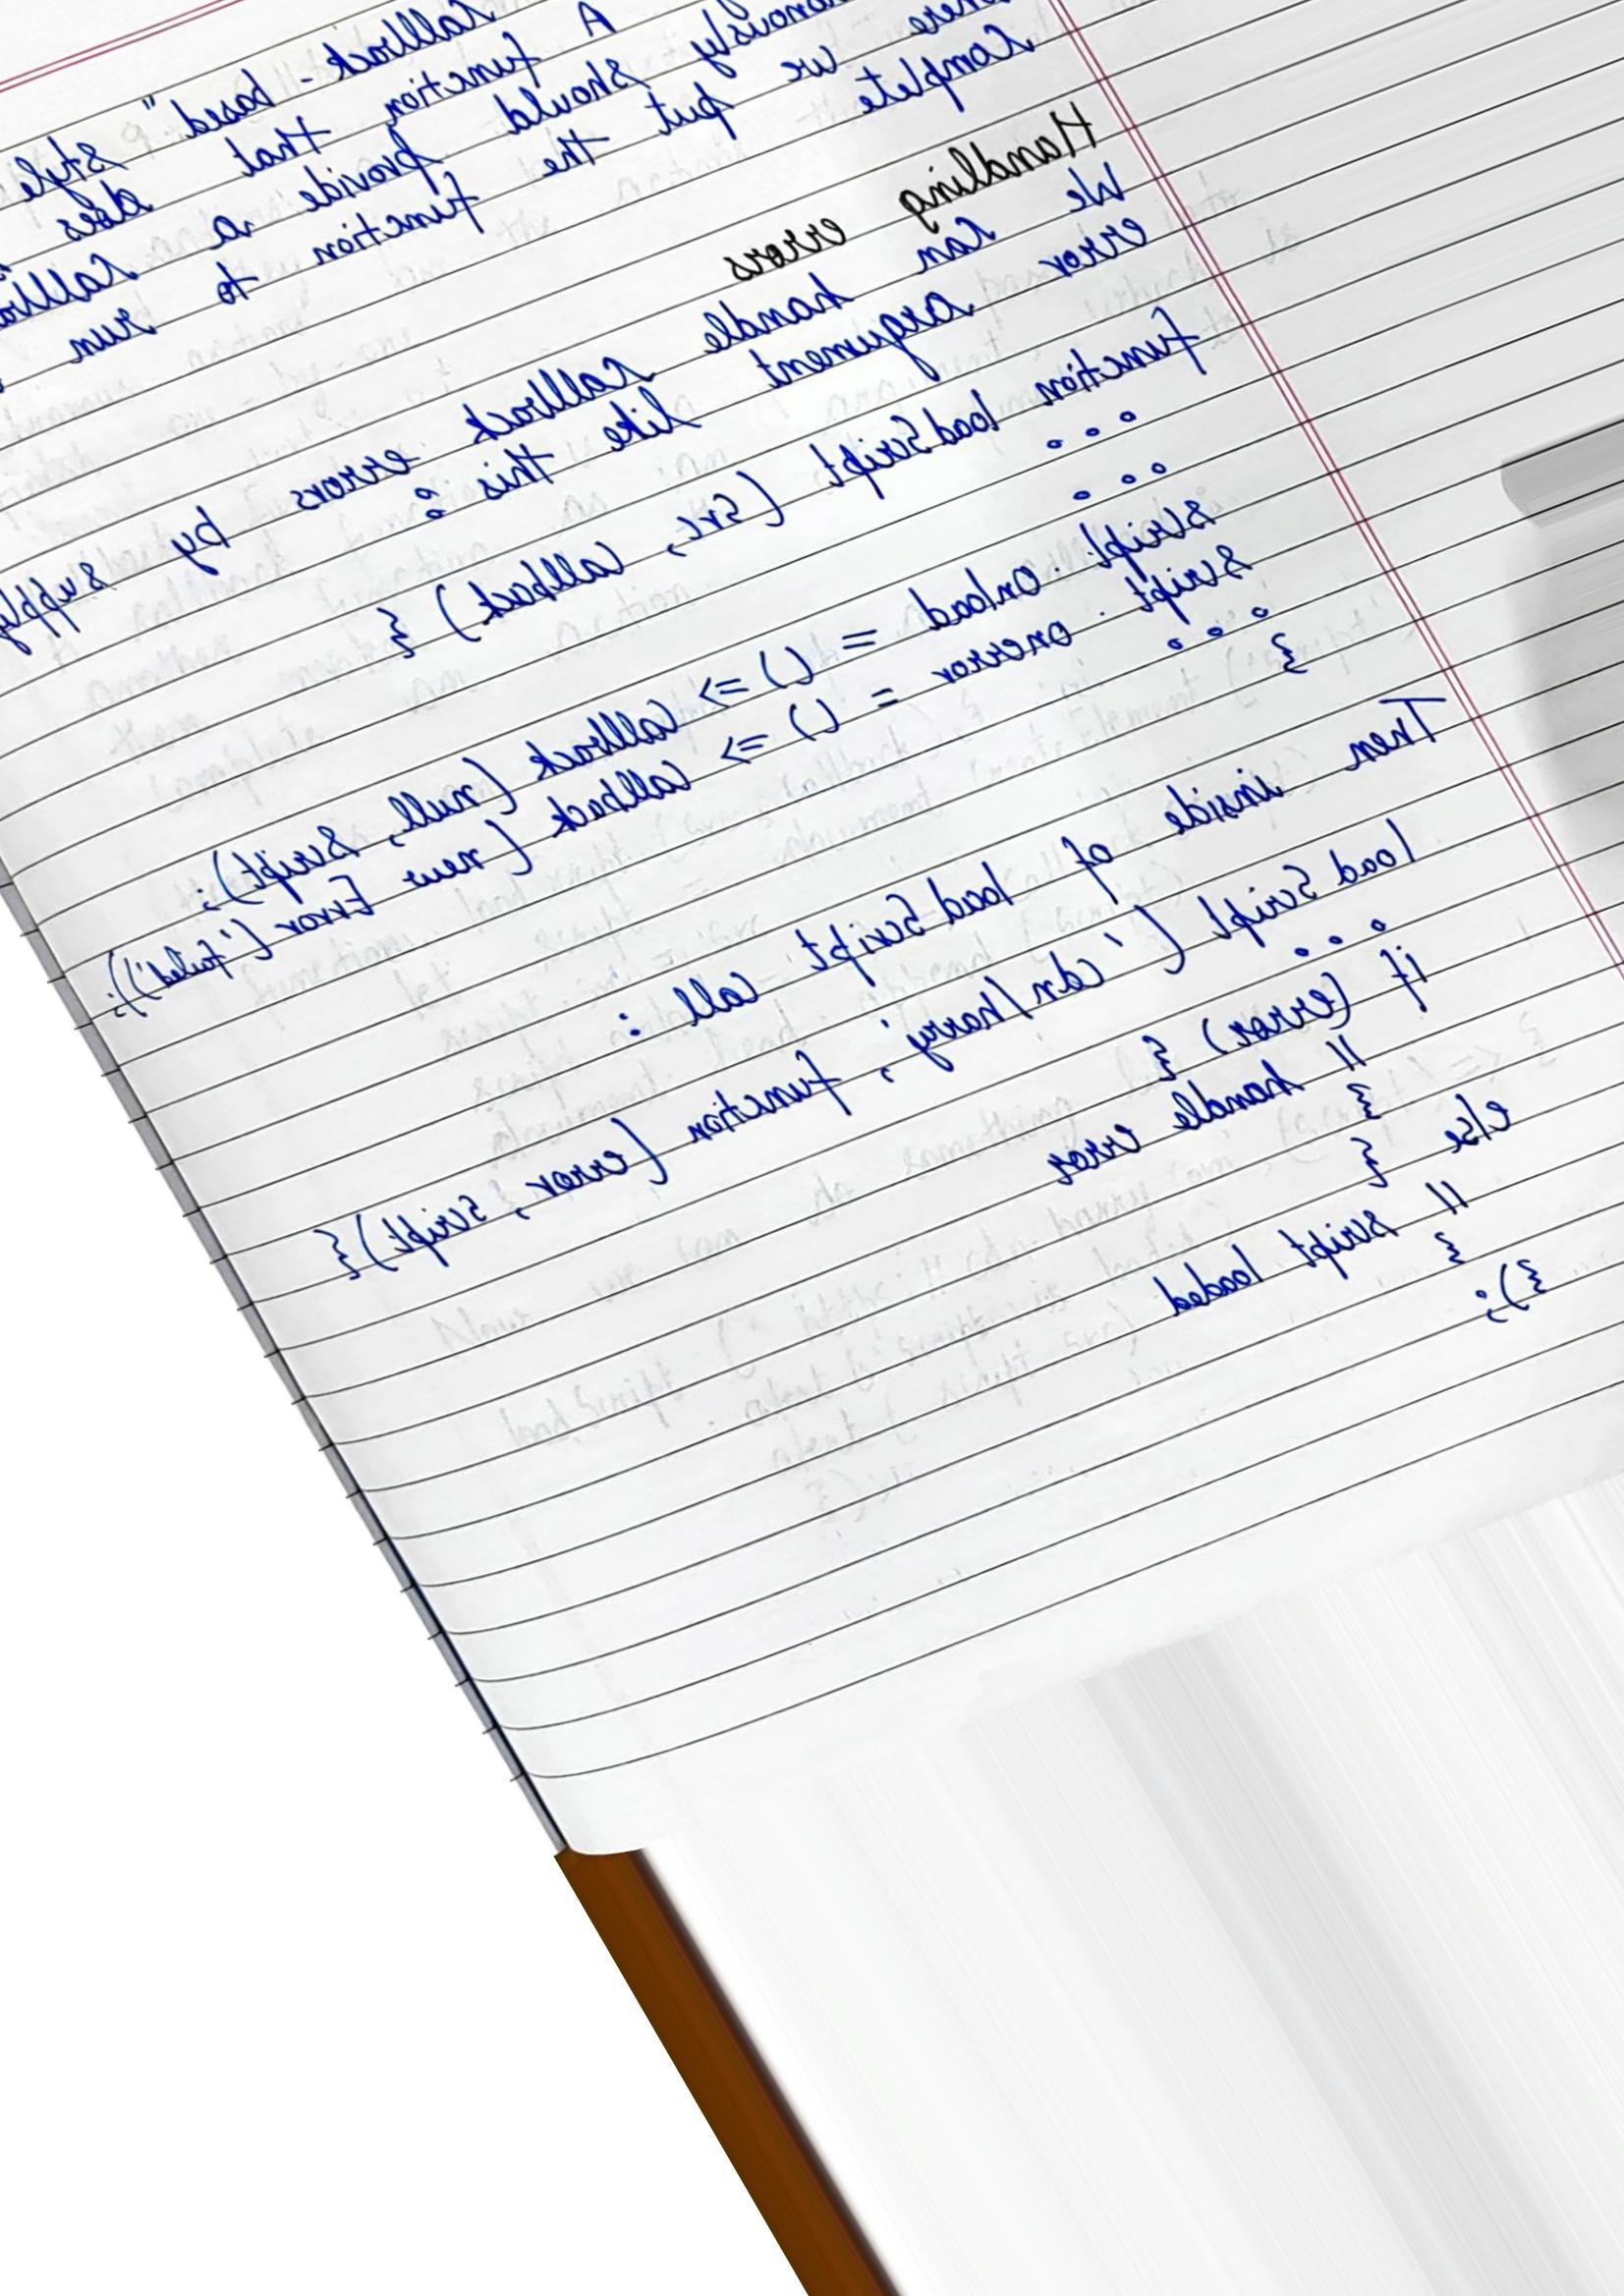 callback - based" style
A function that does
should provide a
where we put the function to run
complete
Handling errors
We can handle callback errors by
error argument like this :
function loadScript (src, callback) {
. . .
. . .
script . onload = () => callback (null, script);
script . onerror = () => callback (new Error ('failed'));
. . .
}
Then inside of loadScript call :
loadScript ('cdn/harry', function (error, script) {
. . .
if (error) {
// handle error
}
else {
// script loaded
}
});